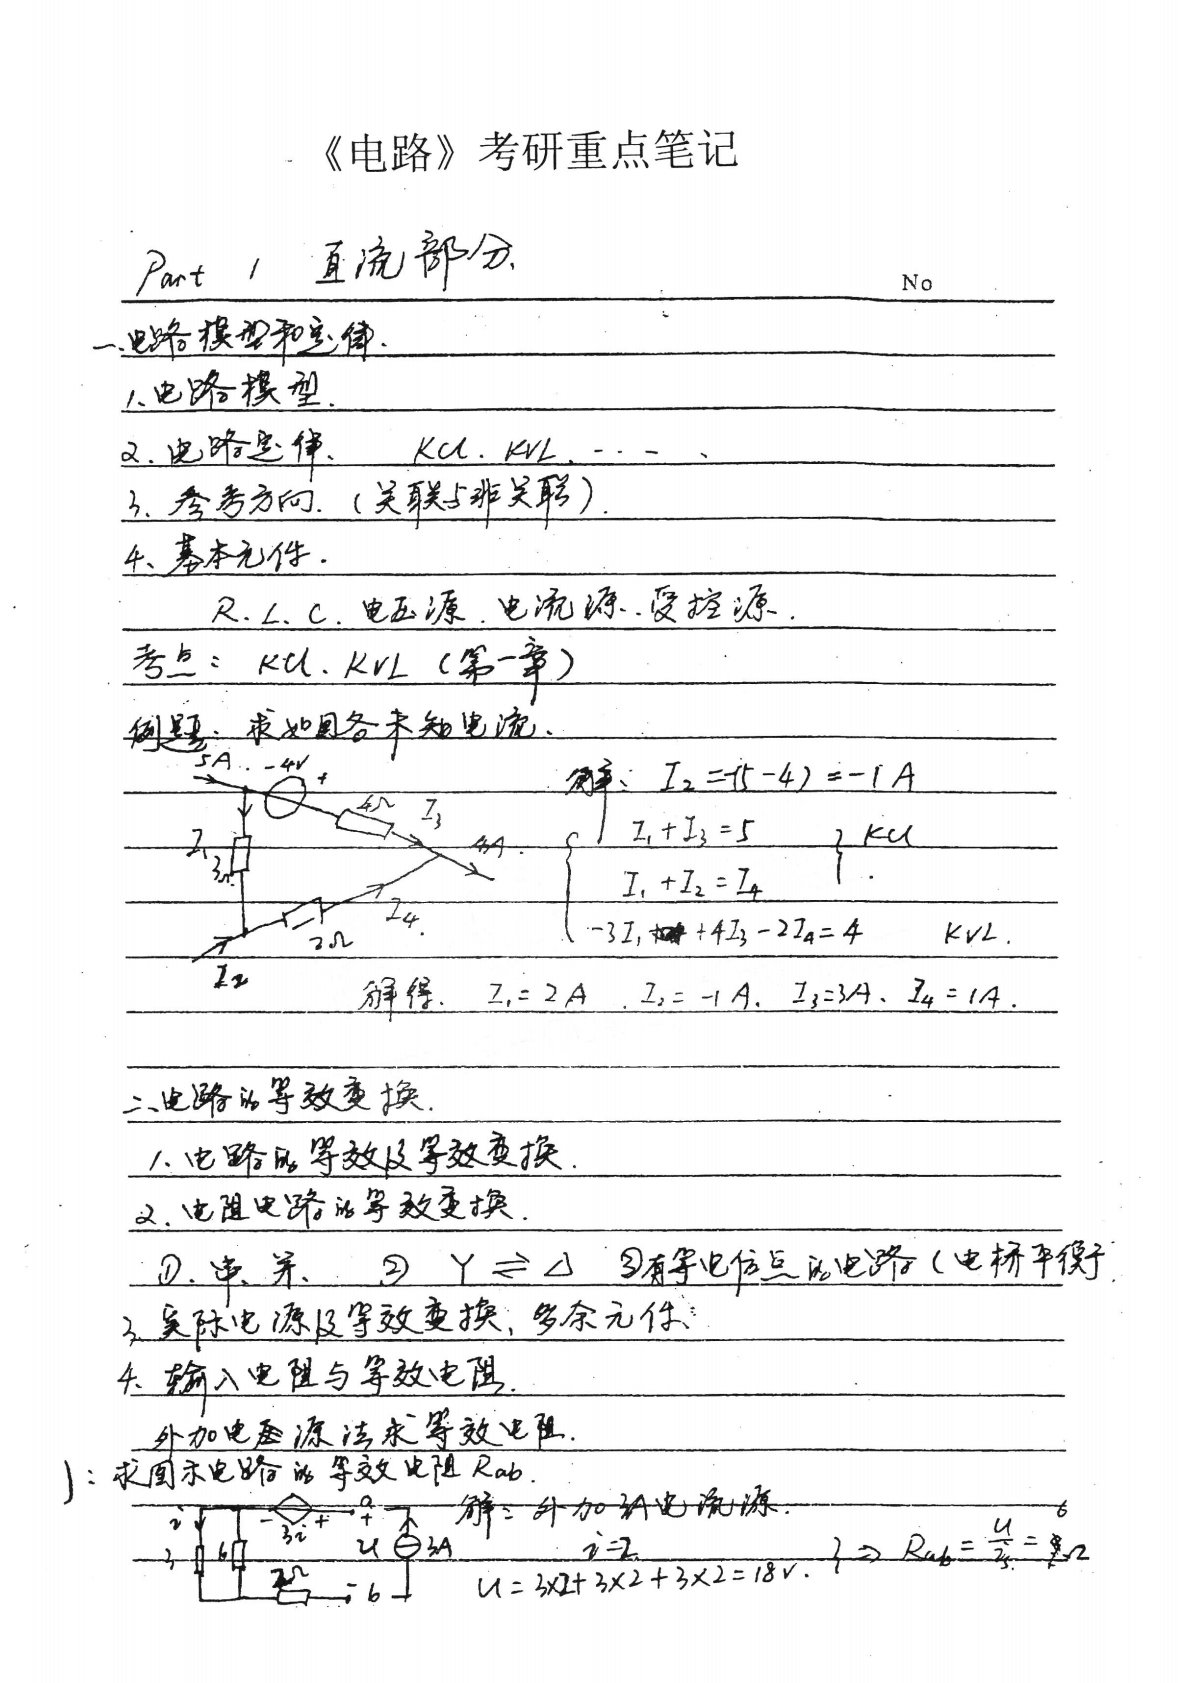 《电路》考研重点笔记
Part 1 直流部分.
No
一.电路模型和定律.
1、电路模型.
2. 电路定律、 KCL. KVL. ----、
3、参考方向.(关联与非关联).
4、基本元件.
R. L. C. 电压源. 电流源. 受控源.
考点: KCL. KVL (第一章)
例题: 求如图各未知电流.
5A. -4V +
4Ω I3
I1 3Ω
4A.
I4.
2Ω
I2
解: I2 =-(5-4) = -1A
I1 + I3 = 5 } KCL
I1 + I2 = I4
-3I1 +4I3 -2I4 = 4 KVL.
解得. I1 = 2A . I2 = -1A. I3=3A、 I4 = 1A.
二、电路的等效变换.
1、电路的等效及等效变换.
2. 电阻电路的等效变换.
①. 串. 并、 ② Y ⇌ △ ③有等电位点的电路 (电桥平衡于
3、实际电源及等效变换、多余元件:
4. 输入电阻与等效电阻.
外加电压源法求等效电阻.
): 求图示电路的等效电阻 Rab.
i 3 6 - 3i + a + u 3A
2Ω - b
解: 外加3A电流源.
i=2
u = 3×2+3×2+3×2=18V. } ⇒ Rab = u/is = 6Ω